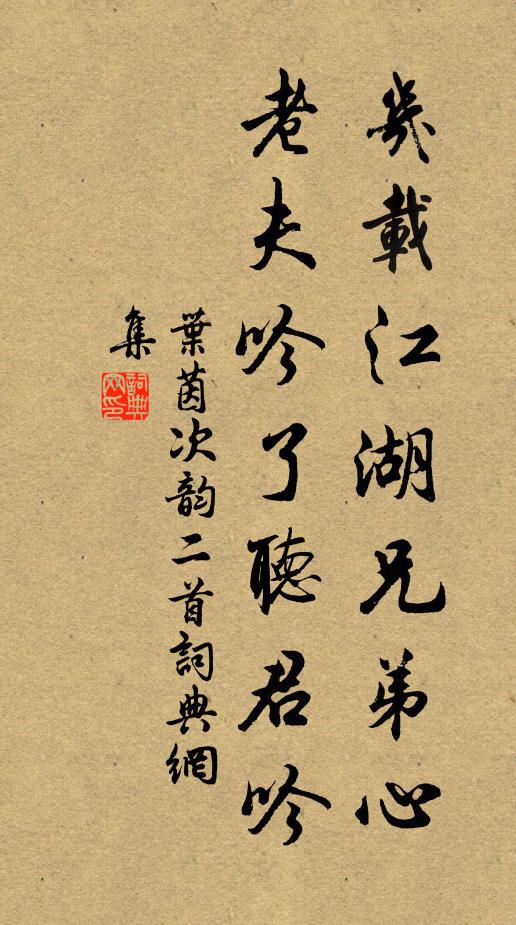 幾載江湖兄弟心
老夫吟了聽君吟
葉茵次韵二首詞典網
集
詞典網印